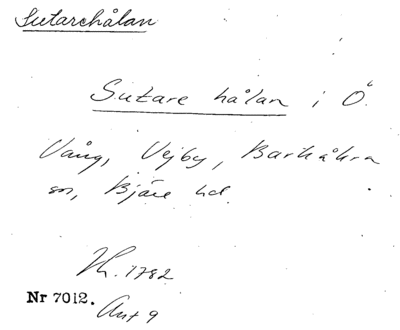 Sutarehålan
Sutare hålan i Ö.
Vång, Vejby, Barkåkra
sn, Bjäre hd.
1782
Nr 7012.
Akt 9